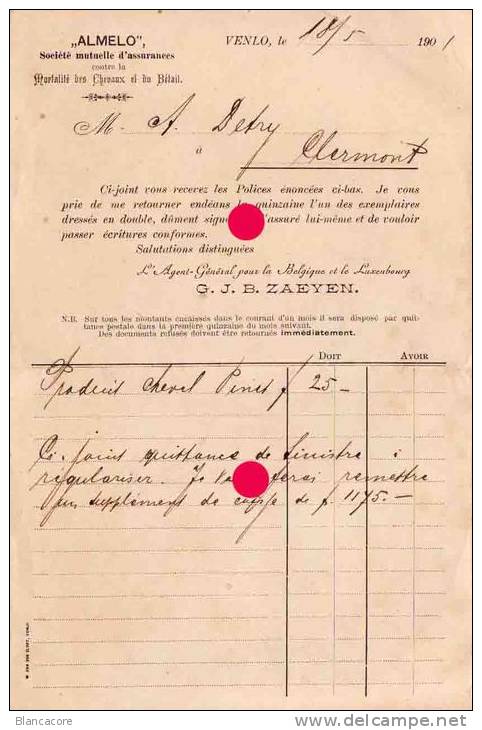 „ALMELO",
Société mutuelle d'assurances
contre la
Mortalité des Chevaux et du Bétail.
VENLO, le 18/5 1901
M. A. Detry
à
Clermont
Ci-joint vous recevez les Polices énoncées ci-bas. Je vous
prie de me retourner endéans la quinzaine l'un des exemplaires
dressés en double, dûment signé l'assuré lui-même et de vouloir
passer écritures conformes.
Salutations distinguées
L'Agent-Général pour la Belgique et le Luxembourg
G. J. B. ZAEYEN.
N.B. Sur tous les montants encaissés dans le courant d'un mois il sera disposé par quit-
tance postale dans la première quinzaine du mois suivant.
Des documents refusés doivent être retournés immédiatement.
DOIT AVOIR
Produit cheval f 25 —
Ci-joint quittance de sinistre à
régulariser. Je ferai remettre
un supplément de f. 1175.—
Blancacore
delcampe.net